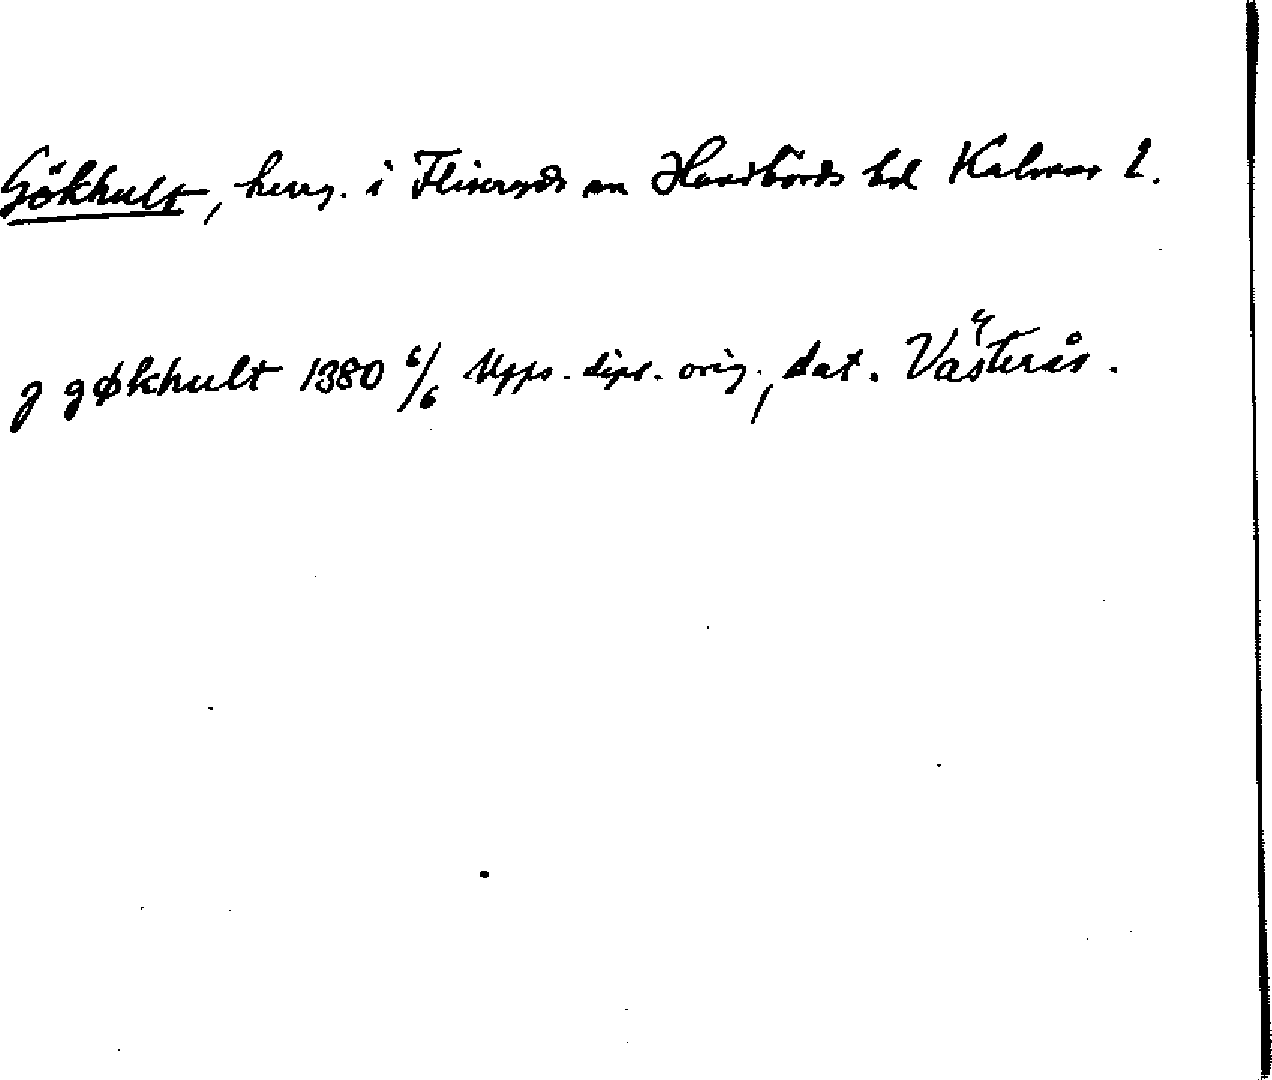 Gökhult, herrg. i Fliseryds sn Handbörds hd Kalmar l.
J gøkhult 1380 6/6 Upps. dipl. orig., dat. Västerås.